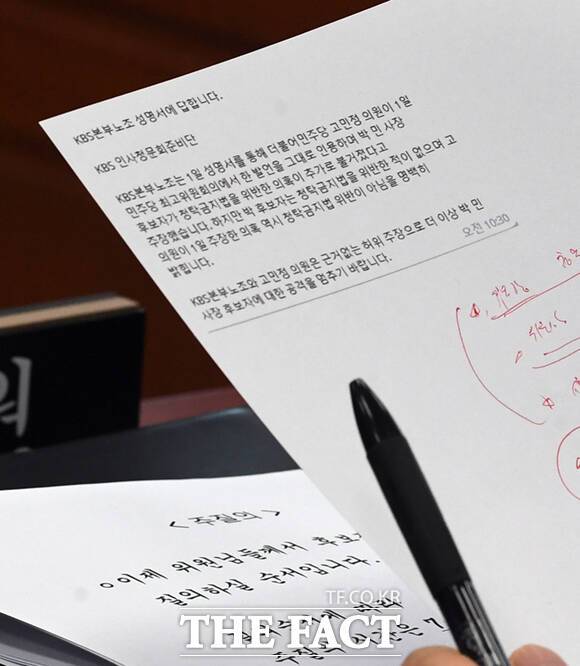 KBS본부노조 성명서에 답합니다.
KBS 인사청문회준비단
KBS본부노조는 1일 성명서를 통해 더불어민주당 고민정 의원이 1일
민주당 최고위원회의에서 한 발언을 그대로 인용하며 박 민 사장
후보자가 청탁금지법을 위반한 의혹이 추가로 불거졌다고
주장했습니다. 하지만 박 후보자는 청탁금지법을 위반한 적이 없으며 고
의원이 1일 주장한 의혹 역시 청탁금지법 위반이 아님을 명백히
밝힙니다.
오전 10:30
KBS본부노조와 고민정 의원은 근거없는 허위 주장으로 더 이상 박 민
사장 후보자에 대한 공격을 멈추기 바랍니다.
의
< 주질의 >
○이제 위원님들께서 후보자
질의하실 순서입니다.
TF.CO.KR
THE FACT